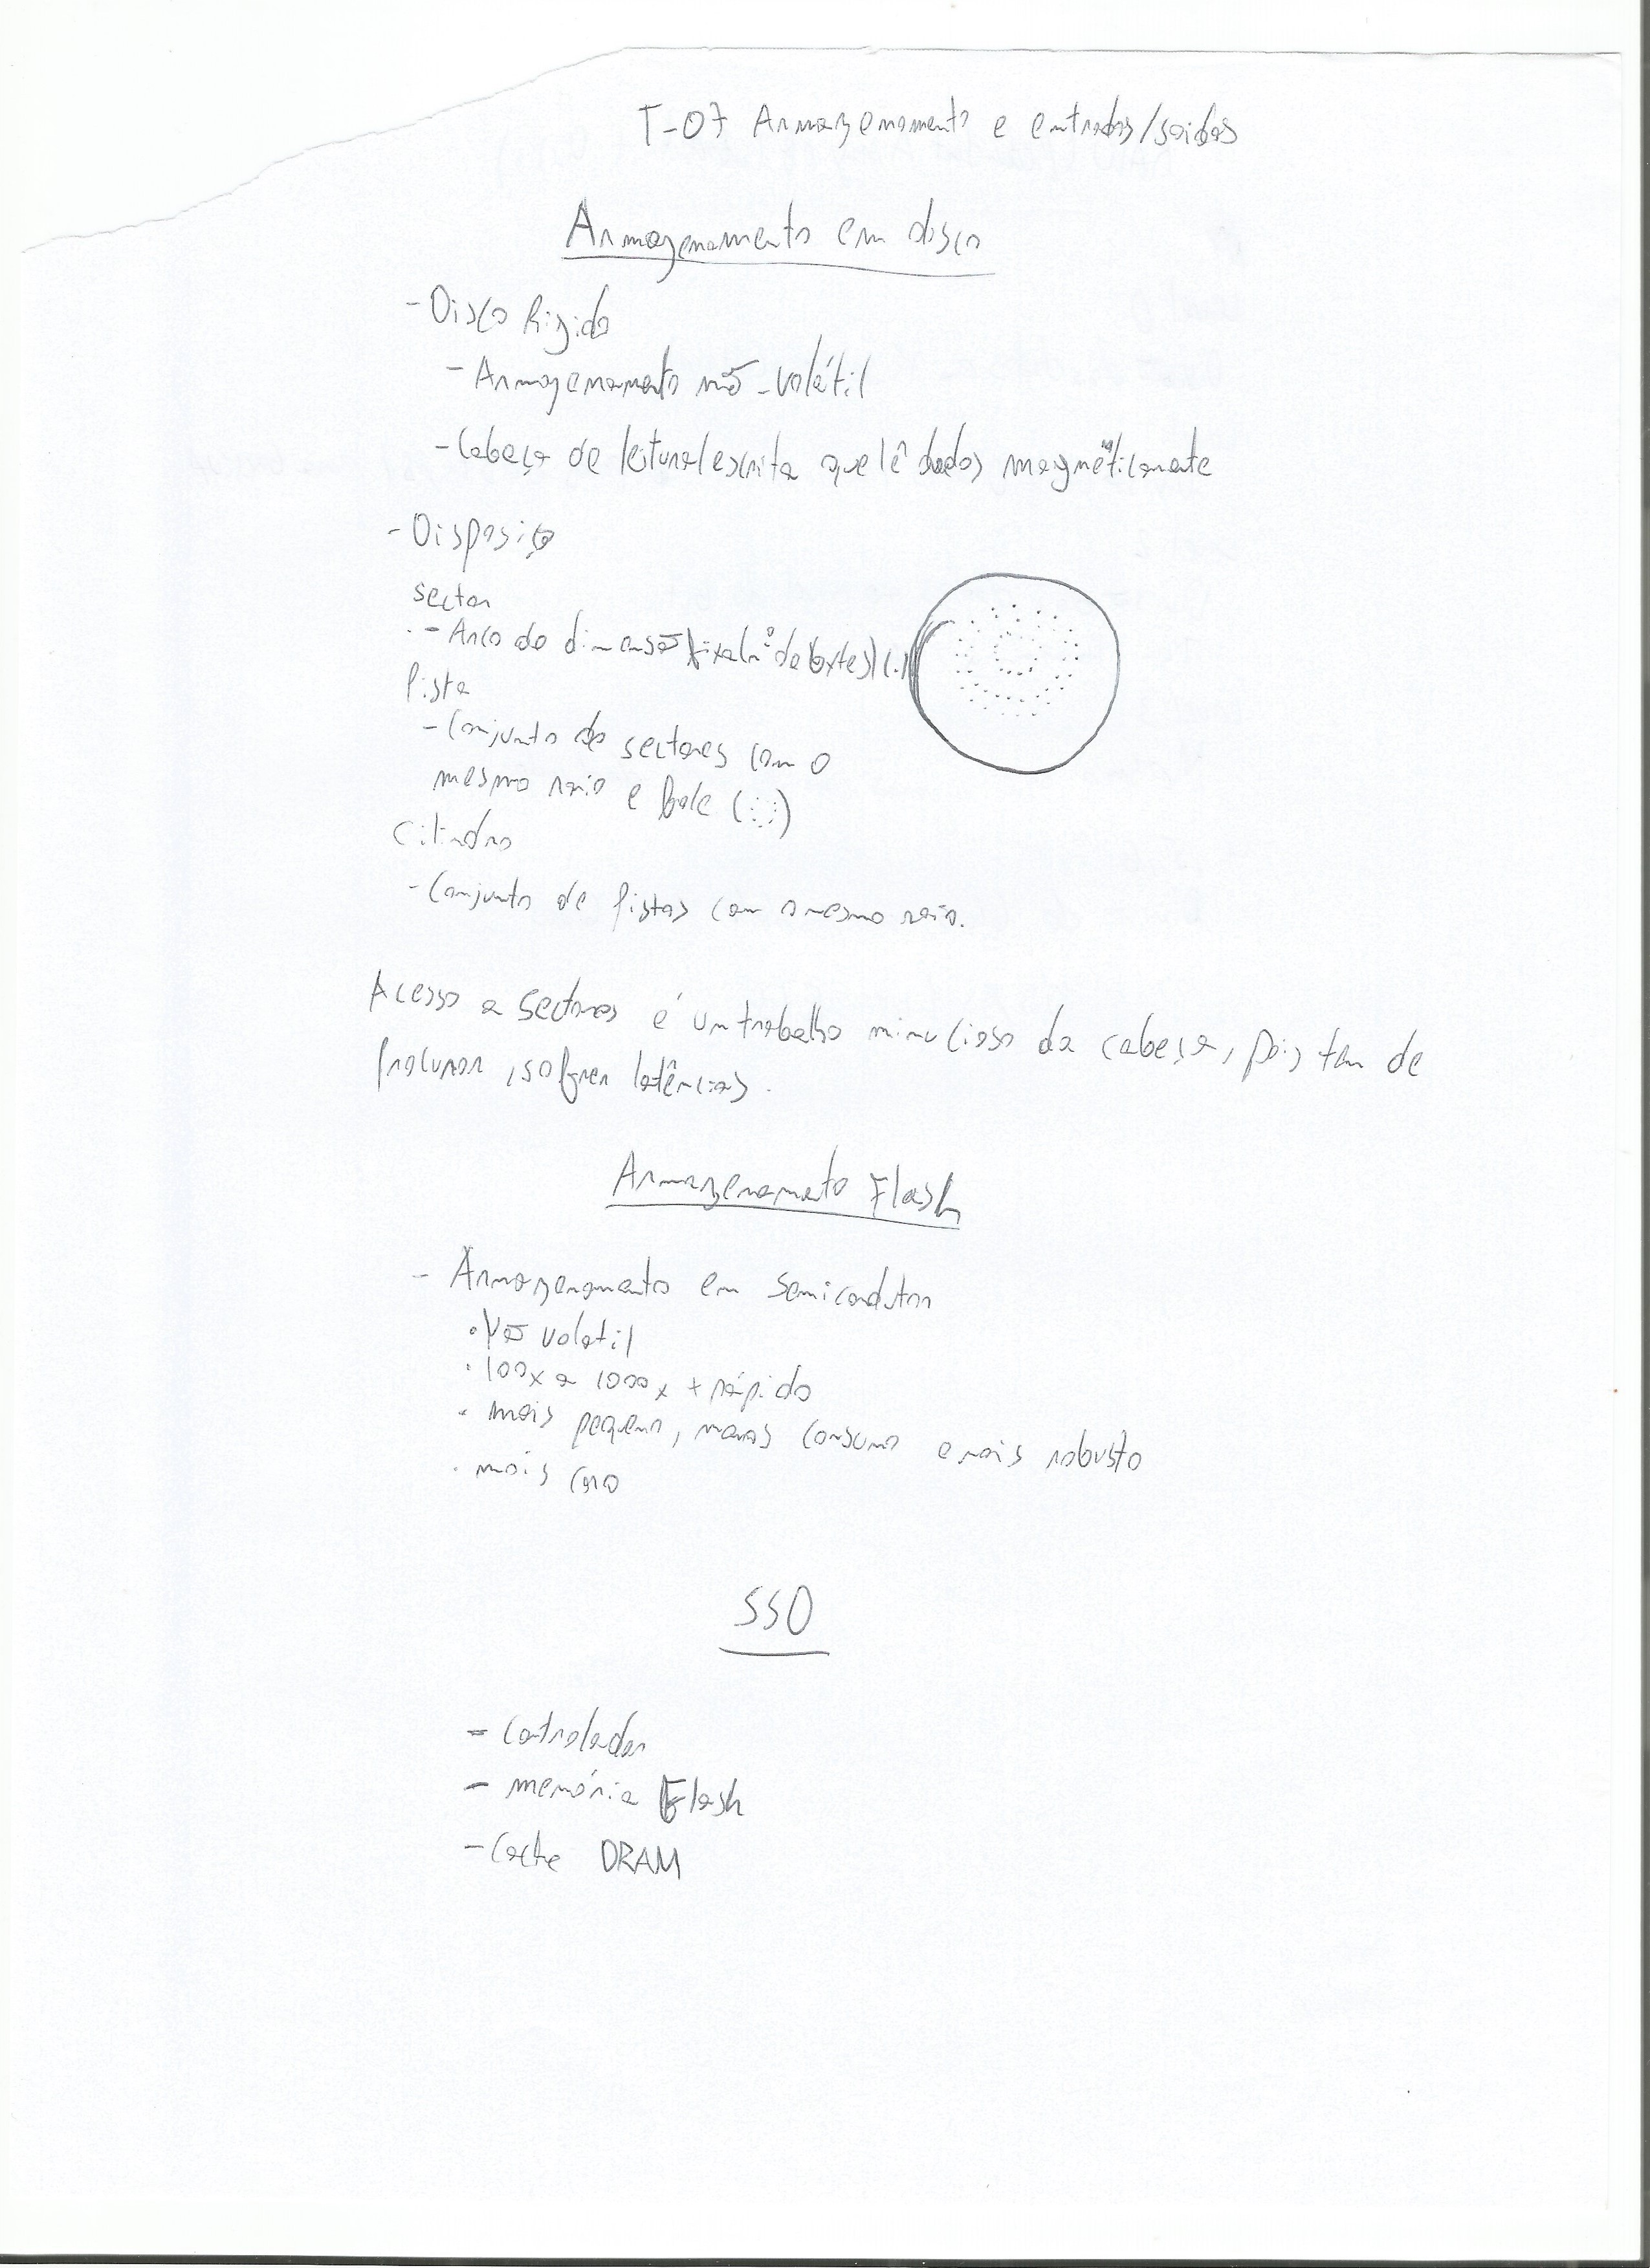 T-07 Armazenamento e entradas/saídas
Armazenamento em disco
- Disco Rigido
- Armazenamento não-volátil
- Cabeça de leitura/escrita que lê dados magnéticamente
- Disposição
sector
- Arco de dimensão fixa (nº de bytes) (.)
Pista
- Conjunto de sectores com o
mesmo raio e face (
Cilindro
- Conjunto de pistas com o mesmo raio.
Acesso a sectores é um trabalho minucioso da cabeça, pois tem de
procurar, sofrer latências.
Armazenamento Flash
- Armazenamento em semicondutor
• Não volatil
• 100x a 1000x + rápido
• mais pequeno, menos consumo e mais robusto
• mais caro
SSD
- Controlador
- memória Flash
- Cache DRAM